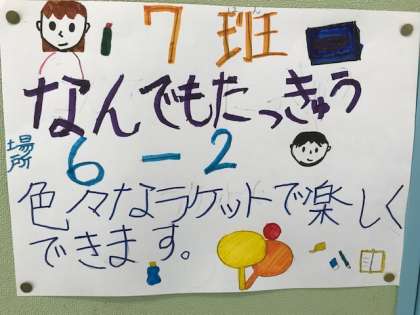 7班
はん
なんでもたっきゅう
場所 6-2
色々なラケットで楽しく
できます。